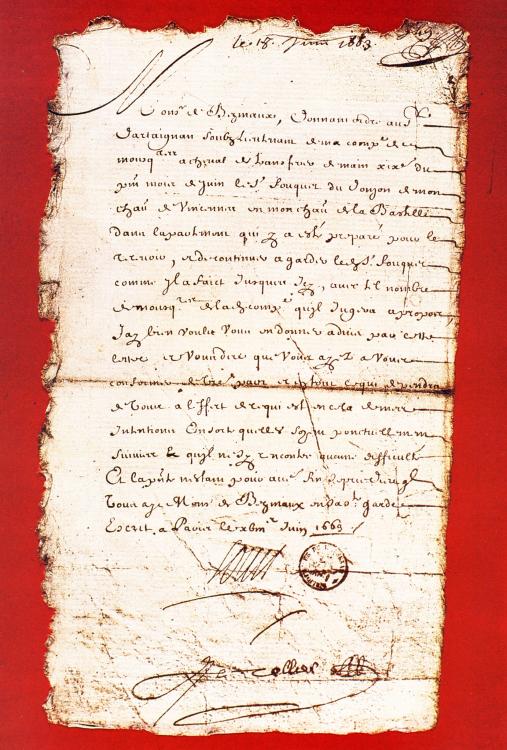 le 18 Juin 1663
Mons.r de Bezmaux, donnant ordre au S.r
d'artaignan soubz Lieutenant de ma comp.e de
mousq.res a cheval de transferer demain xixe du
p̃nt mois de Juin le S.r fouquet du Donjon de mon
chãu de Vincennes en mon chãu de la Bastille
dans lapartement qui y a esté preparé pour le
recevoir, et de continuer a garder led. S.r fouquet
comme Il a faict Jusques Icy, avec tel nombre
de mousq.res de lad. comp.e qu'il Jugera a propos,
J'ay bien voulu vous en donner advis par cette
lettre et vous dire que vous ayez a vous
conformer et tout ce qui dependra
de vous a l'effect de ce qui est en cela de mes
Intentions Ensorte quelles soyent ponctuellement
suivies & quil ne sy rencontre aucune difficulté
Et la p̃nte n'estant pour autre fin Je prie dieu qu'il
vous ayt Mons.r de Bezmaux en sa s.te garde
Escrit a Paris le xviii.e Juin 1663
Louis